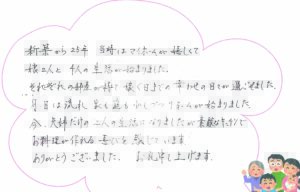 新築から25年 当時はマイホームが嬉しくて
娘二人と 4人の生活が始まりました。
それぞれの部屋が持て 輝く日までの 幸せの日々が過ごせました。
月日は流れ 娘も
今、夫婦だけの二人の生活になりましたが 素敵なキッチンで
お料理が作れる 喜びを感じています。
ありがとうございました。 お礼申し上げます。